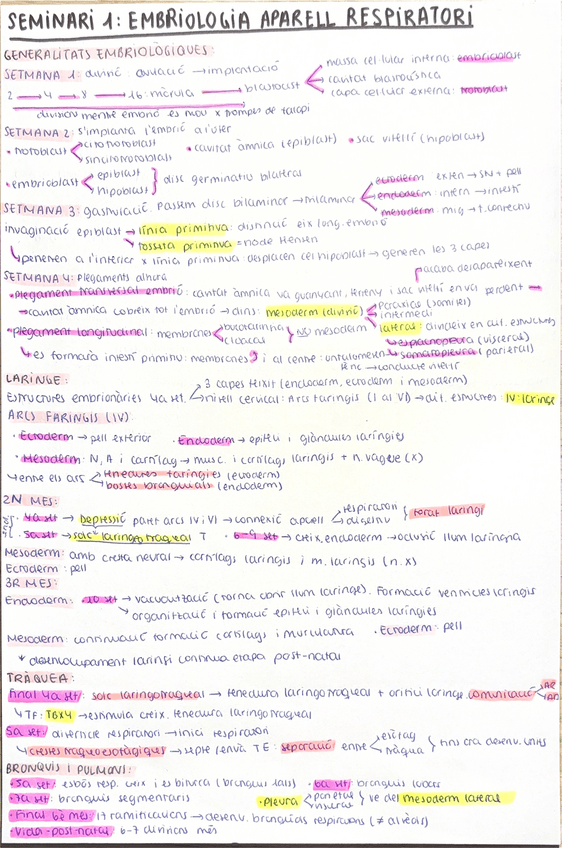 SEMINARI 1: EMBRIOLOGIA APARELL RESPIRATORI
GENERALITATS EMBRIOLÒGIQUES:
SETMANA 1: divisió: ovulació → implantació
massa cel·lular interna: embrioblast
cavitat blastocística
capa cel·lular externa: trofoblast
2 → 4 → 8 → 16: mòrula → blastocist
divisió mentre embrió es mou x trompes de Falopi
SETMANA 2: s'implanta l'embrió a l'úter
• trofoblast citotrofoblast
sincitiotrofoblast
• cavitat àmnica (epiblast)
• sac vitel·lí (hipoblast)
• embrioblast epiblast
hipoblast } disc germinatiu
ectoderm: extern → SN + pell
endoderm: intern → intestí
mesoderm: mig → t. connectiu
SETMANA 3: gastrulació. Passem disc bilaminar → trilaminar
invaginació epiblast → línia primitiva: distinció eix long. embrió
fosseta primitiva = node Hensen
penetren a l'interior x línia primitiva desplacen cèl hipoblast → generen les 3 capes
SETMANA 4: Plegaments alhora
acaba desapareixent
• Plegament transversal embrió: cavitat àmnica va guanyant terreny i sac vitel·lí en va perdent
→ cavitat àmnica cobreix tot l'embrió → dins: mesoderm (divisió)
Paraxias (somites)
intermedi
laterals: divideix en estructures
esplacnopleura (vísceres)
somatopleura (parietal)
• plegament longitudinal: membranes
cloacal
NO mesoderm
→ es formarà intestí primitiu: membranes i al centre:
LARINGE:
Estructures embrionàries 4a set.
3 capes Hixit (endoderm, ectoderm i mesoderm)
nivell cervical: Arcs faringis (I al VI) → dif. estructures: IV laringe
ARCS FARINGIS (IV)
• Ectoderm → pell exterior • Endoderm → epiteli i glàndules laríngies
• Mesoderm: N, A i cartílag → musc. i cartílags laringis + n. vague (X)
→ entre els arcs fenedures faríngies (ectoderm)
bosses branquials (endoderm)
2N MES:
• 4a set → Depressió paret arcs IV i VI → connexió aparell respiratori
digestiu
• 5a set → sac laringotraqueal T • 6-9 set → creix. endoderm → oclusió llum laringea
Mesoderm: amb cresta neural → cartílags laringis i m. laringis (n. x)
Ectoderm: pell
3R MES:
Endoderm: • 10 set → vacuolització (torna conr llum laringe). Formació ventricles laringis
organització i formació epiteli i glàndules laríngies
Mesoderm: continuació formació cartílags i musculatura • Ectoderm: pell
* desenvolupament laringi continua etapa post-natal
TRÀQUEA:
Final 4a set: solc laringotraqueal → fenedura laringotraqueal + orifici laringe. comunicació AR
AD
↳ TF: TBX4 → estimula creix. fenedura laringotraqueal
5a set: diverticle respiratori → inici respiratori
↳ crestes traqueoesofàgiques → septe/envà TE: separació entre esòfag
tràqua
BRONQUIS I PULMONS:
• 5a set: esbós resp. creix i es bifurca (bronquis falls) • 6a set: bronquis lobars
• 7a set: bronquis segmentaris • Pleura parietal
visceral } ve del mesoderm lateral
• Final 6è mes: 17 ramificacions → desenv. bronquíols respiratoris (≠ alvèols)
• Vida post-natal: 6-7 divisions més